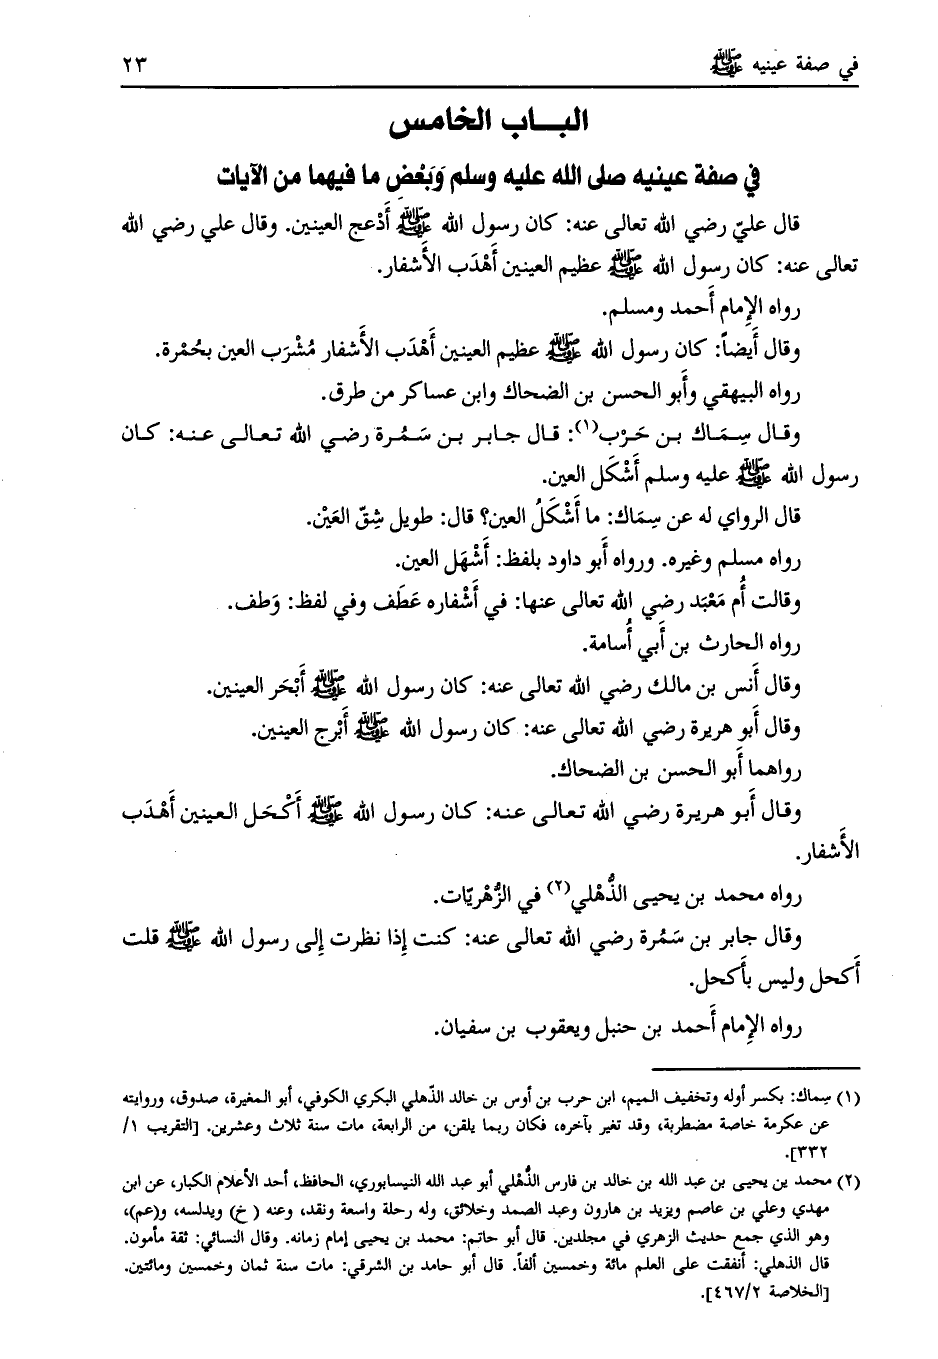 في صفة عينيه ﷺ ٢٣
البـــاب الخامس
في صفة عينيه صلى الله عليه وسلم وَبَعْضِ ما فيهما من الآيات
قال عليّ رضي الله تعالى عنه: كان رسول الله ﷺ أَدْعج العينين. وقال علي رضي الله
تعالى عنه: كان رسول الله ﷺ عظيم العينين أَهْدَب الأَشفار.
رواه الإِمام أَحمد ومسلم.
وقال أَيضاً: كان رسول الله ﷺ عظيم العينين أَهْدَب الأَشفار مُشْرَب العين بحُمْرة.
رواه البيهقي وأَبو الحسن بن الضحاك وابن عساكر من طرق.
وقال سِمَاك بن حَرْب(١): قال جابر بن سَمُرة رضي الله تعالى عنه: كان
رسول الله ﷺ عليه وسلم أَشْكَل العين.
قال الرواي له عن سِمَاك: ما أَشْكَلُ العين؟ قال: طويل شِقّ العَيْن.
رواه مسلم وغيره. ورواه أَبو داود بلفظ: أَشْهَل العين.
وقالت أُم مَعْبَد رضي الله تعالى عنها: في أَشْفاره عَطَف وفي لفظ: وَطف.
رواه الحارث بن أَبي أُسامة.
وقال أَنس بن مالك رضي الله تعالى عنه: كان رسول الله ﷺ أَبْحَر العينين.
وقال أَبو هريرة رضي الله تعالى عنه: كان رسول الله ﷺ أَبْرج العينين.
رواهما أَبو الحسن بن الضحاك.
وقال أَبو هريرة رضي الله تعالى عنه: كان رسول الله ﷺ أَكْحَل العينين أَهْدَب
الأَشفار.
رواه محمد بن يحيى الذُّهْلي(٢) في الزُّهْريّات.
وقال جابر بن سَمُرة رضي الله تعالى عنه: كنت إِذا نظرت إِلى رسول الله ﷺ قلت
أَكحل وليس بأَكحل.
رواه الإِمام أَحمد بن حنبل ويعقوب بن سفيان.
(١) سِماك: بكسر أوله وتخفيف الميم، ابن حرب بن أوس بن خالد الذّهلي البكري الكوفي، أبو المغيرة، صدوق، وروايته
عن عكرمة خاصة مضطربة، وقد تغير بآخره، فكان ربما يلقن، من الرابعة، مات سنة ثلاث وعشرين. [التقريب ١/
٣٣٢].
(٢) محمد بن يحيى بن عبد الله بن خالد بن فارس الذُّهْلي أبو عبد الله النيسابوري، الحافظ، أحد الأعلام الكبار، عن ابن
مهدي وعلي بن عاصم ويزيد بن هارون وعبد الصمد وخلائق، وله رحلة واسعة ونقد، وعنه (خ) ويدلسه، و(عم)،
وهو الذي جمع حديث الزهري في مجلدين. قال أبو حاتم: محمد بن يحيى إمام زمانه. وقال النسائي: ثقة مأمون.
قال الذهلي: أنفقت على العلم مائة وخمسين ألفاً. قال أبو حامد بن الشرقي: مات سنة ثمان وخمسين ومائتين.
[الخلاصة ٤٦٧/٢].